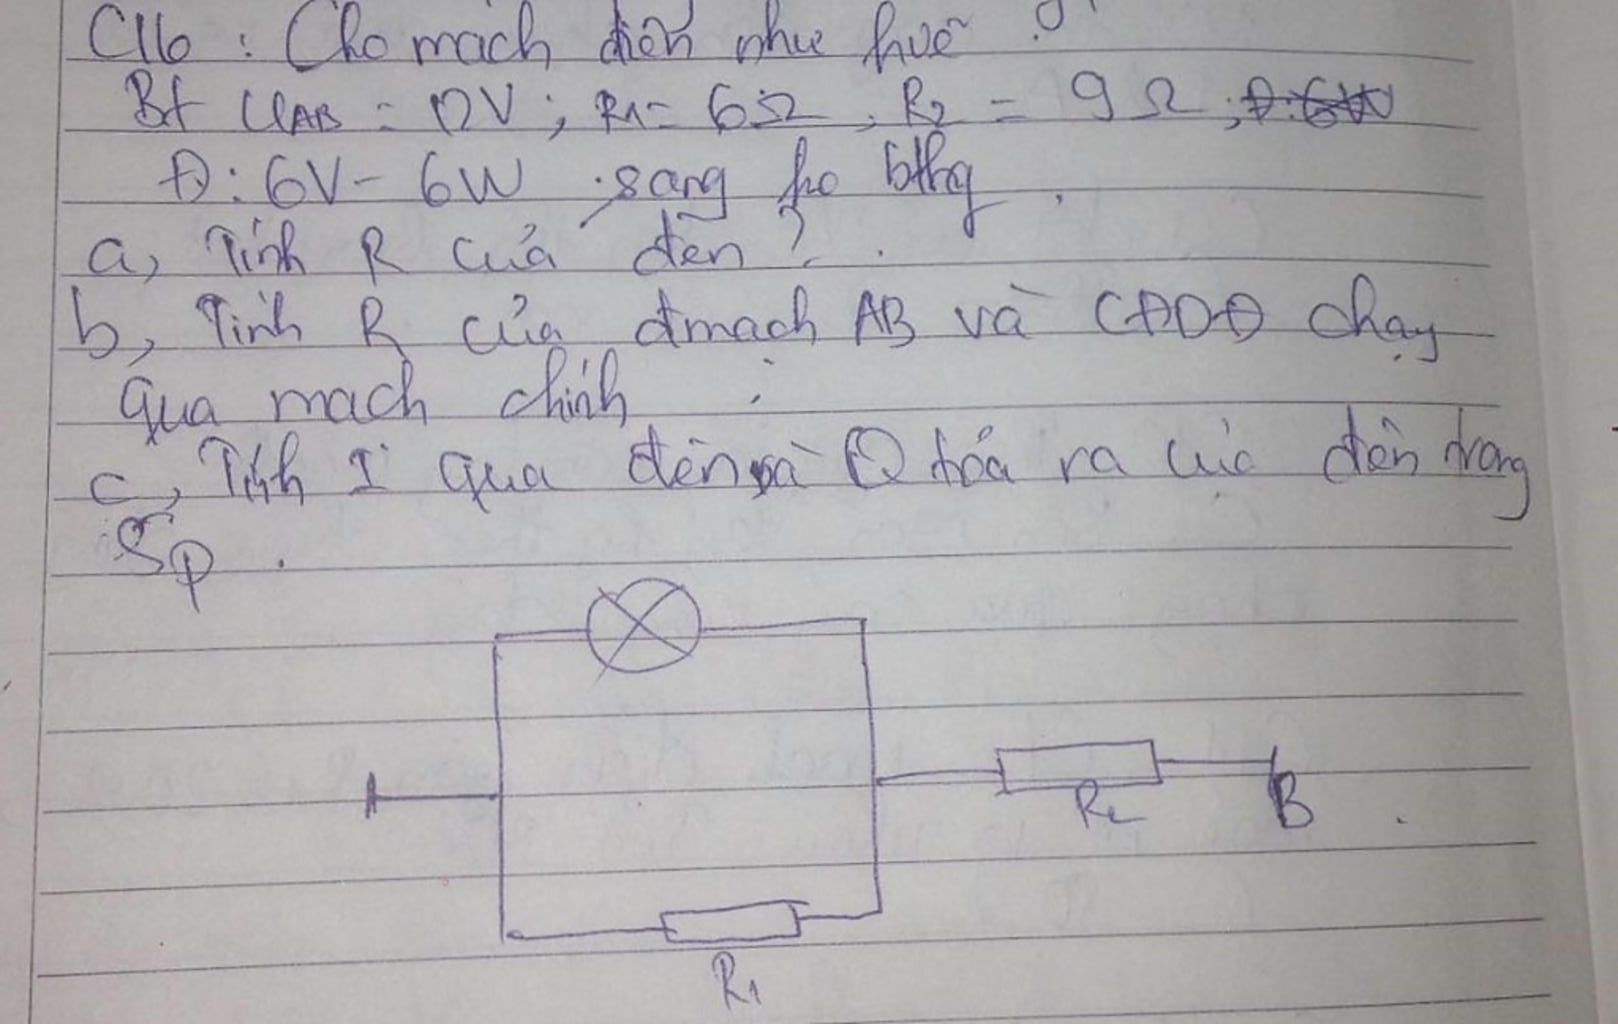 C16: Cho mạch điện như hvẽ
Bt UAB = 12V; R1 = 6Ω, R2 = 9Ω;
Đ: 6V - 6W sáng ko bthg
a, Tính R của đèn?
b, Tính R của đmạch AB và CĐDĐ chạy
qua mạch chính
c, Tính I qua đèn và Q tỏa ra của đèn trong
5p.
A
R2
B
R1